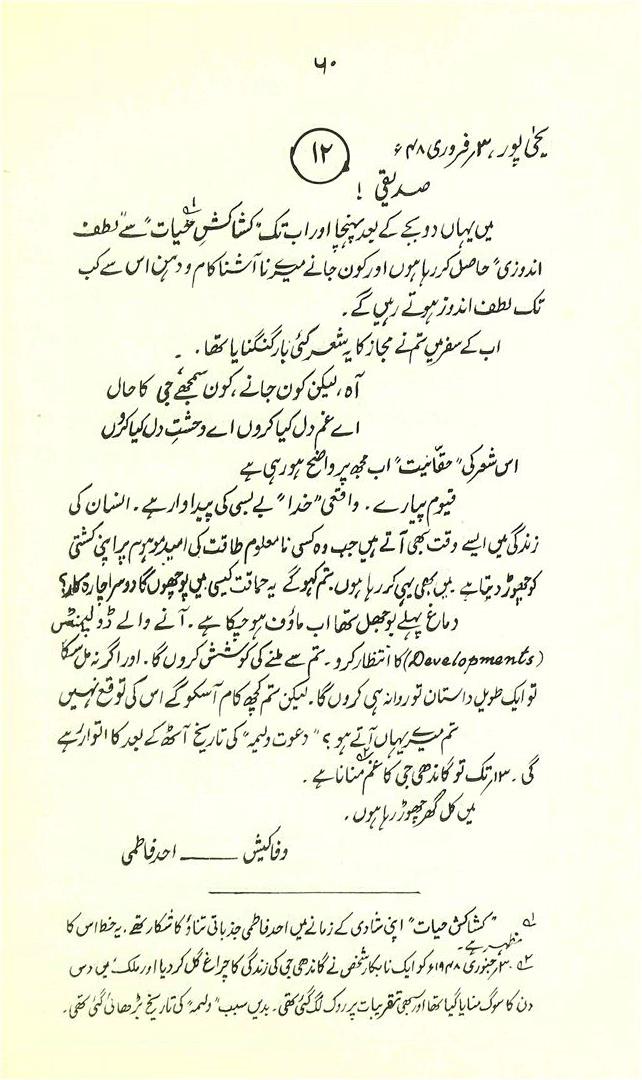 ۶۰
یحیٰی پور، ۳؍ فروری ۴۸ء
۱۲
صدیقی !
میں یہاں دو بجے کے بعد پہنچا اور اب تک "کشاکشِ حیات"۱؎ سے "لطف
اندوزی" حاصل کر رہا ہوں اور کون جانے میرے نا آشنا کام و دہن اس سے کب
تک لطف اندوز ہوتے رہیں گے۔
اب کے سفر میں تم نے مجاز کا یہ شعر کئی بار گنگنایا تھا۔
آہ، لیکن کون جانے، کون سمجھے جی کا حال
اے غمِ دل کیا کروں اے وحشتِ دل کیا کروں
اس شعر کی "حقانیت" اب مجھ پر واضح ہو رہی ہے
قیوم پیارے۔ واقعی "خدا" بے بسی کی پیداوار ہے۔ انسان کی
زندگی میں ایسے وقت بھی آتے ہیں جب وہ کسی نامعلوم طاقت کی امید موہوم پر اپنی کشتی
کو چھوڑ دیتا ہے۔ میں بھی یہی کر رہا ہوں۔ تم کہو گے یہ حماقت کیسی میں پوچھوں گا دوسرا چارہ کار؟
دماغ پہلے بوجھل تھا اب ماؤف ہو چکا ہے۔ آنے والے ڈولپمنٹس
(Developments) کا انتظار کرو۔ تم سے ملنے کی کوشش کروں گا۔ اور اگر نہ مل سکا
تو ایک طویل داستان تو روانہ ہی کروں گا۔ لیکن تم کچھ کام آ سکو گے اس کی توقع نہیں
تم میرے یہاں آتے ہو؟ "دعوت ولیمہ" کی تاریخ آٹھ کے بعد کا اتوار رہے
گی۔ ۱۳؍ تک تو گاندھی جی کا غم۲؎ منانا ہے۔
میں کل گھر چھوڑ رہا ہوں۔
وفا کیش ——— احمد فاطمی
۱؎ "کشاکش حیات" اپنی شادی کے زمانے میں احمد فاطمی جذباتی تناؤ کا شکار تھے، یہ خط اس کا
مظہر ہے۔
۲؎ ۳۰؍ جنوری ۱۹۴۸ء کو ایک نابکار شخص نے گاندھی جی کی زندگی کا چراغ گل کر دیا اور ملک میں دس
دن کا سوگ منایا گیا تھا اور سبھی تقریبات پر روک لگ گئی تھی۔ بدیں سبب "ولیمہ" کی تاریخ بڑھائی گئی تھی۔